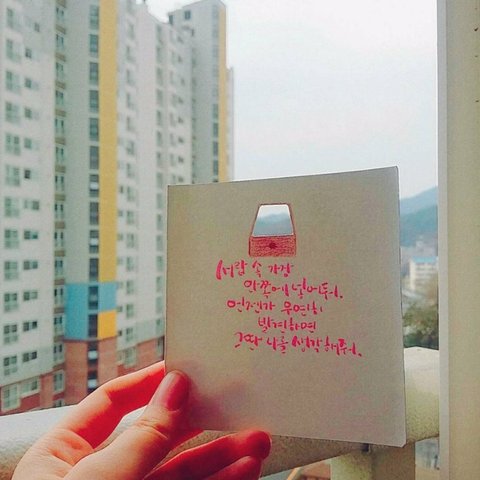 서랍 속 가장
안쪽에 넣어둬.
언젠가 우연히
발견하면
그땐 나를 생각해줘.